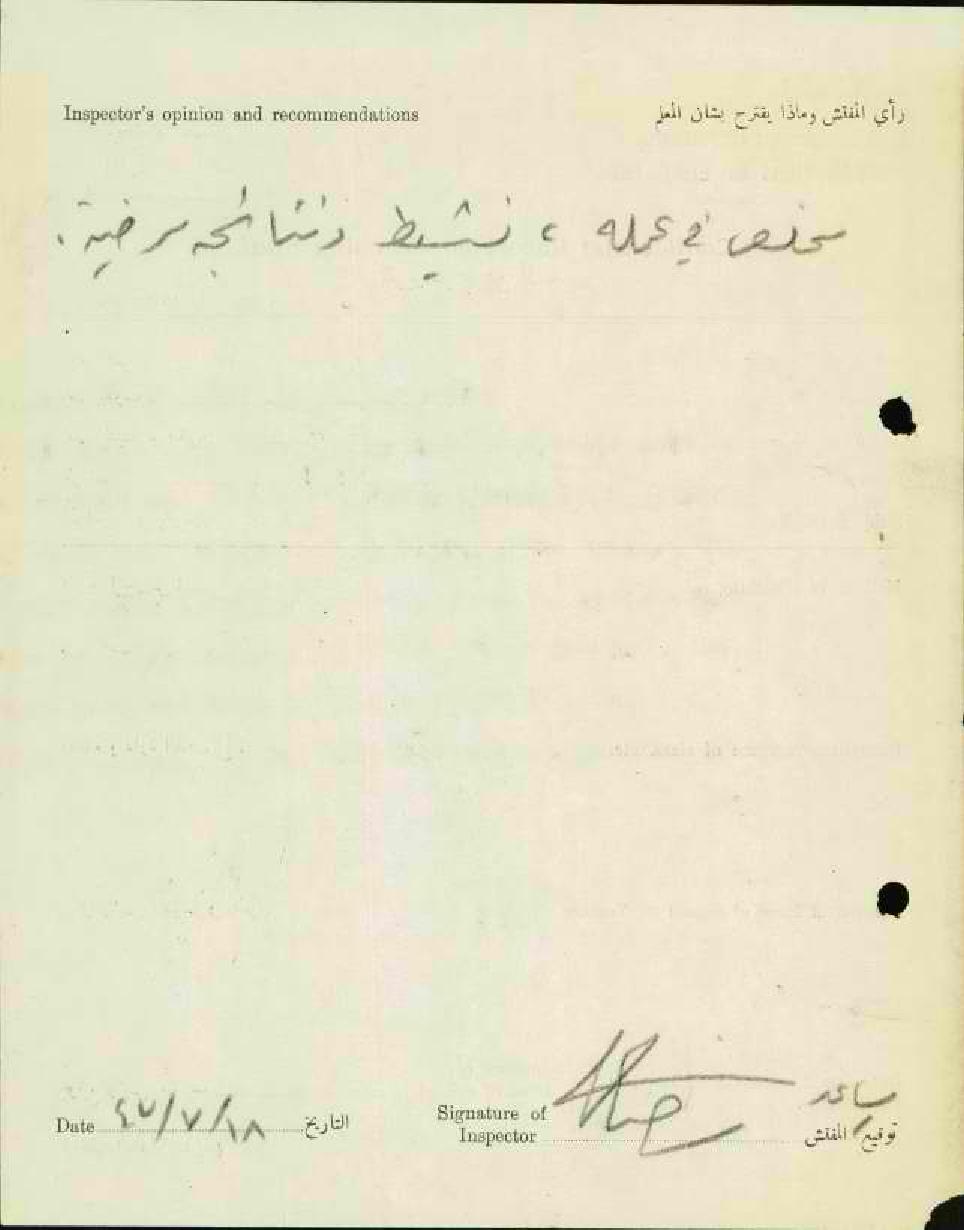 Inspector's opinion and recommendations رأي المفتش وماذا يقترح بشأن المعلم
مخلص في عمله ، نشيط ونتائجه مرضية .
مساعد
Date ٤٧/٧/١٨ التاريخ Signature of Inspector توقيع المفتش